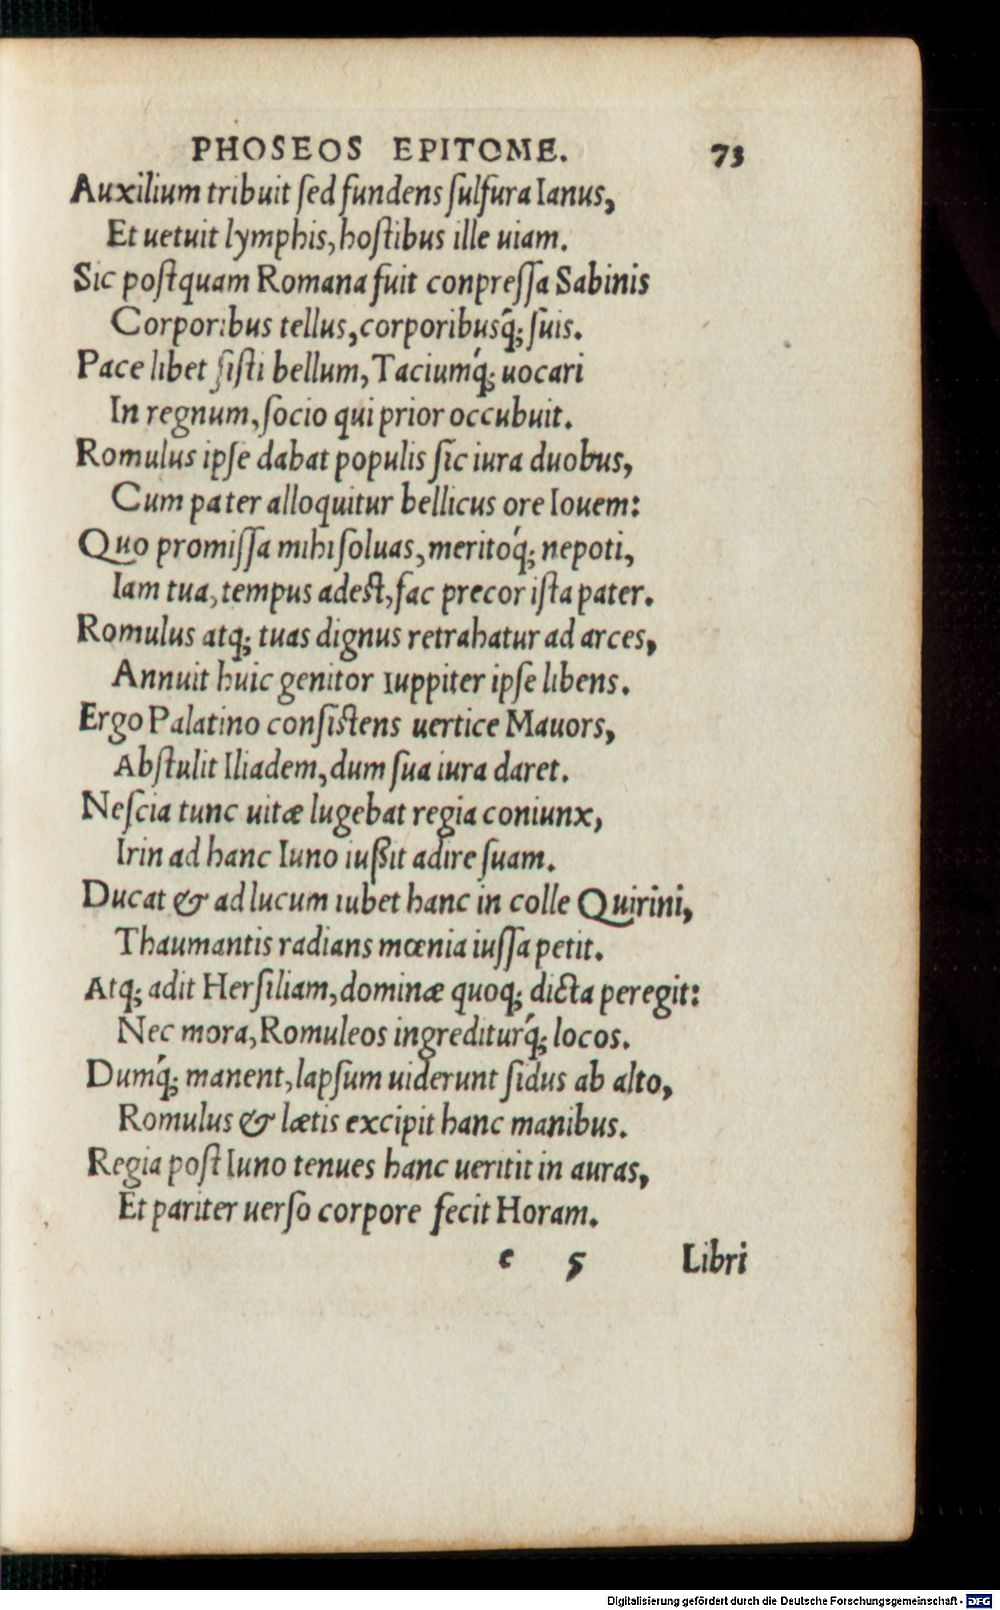 PHOSEOS EPITOME. 73
Auxilium tribuit ſed fundens ſulfura Ianus,
Et uetuit lymphis, hoſtibus ille uiam.
Sic poſtquam Romana fuit conpreſſa Sabinis
Corporibus tellus, corporibusq́; ſuis.
Pace libet ſiſti bellum, Taciumq́; uocari
In regnum, ſocio qui prior occubuit.
Romulus ipſe dabat populis ſic iura duobus,
Cum pater alloquitur bellicus ore Iouem:
Quo promiſſa mihi ſoluas, meritoq́; nepoti,
Iam tua, tempus adeſt, fac precor iſta pater.
Romulus atq; tuas dignus retrahatur ad arces,
Annuit huic genitor iuppiter ipſe libens.
Ergo Palatino conſiſtens uertice Mauors,
Abſtulit Iliadem, dum ſua iura daret.
Neſcia tunc uitæ lugebat regia coniunx,
Irin ad hanc Iuno iußit adire ſuam.
Ducat & ad lucum iubet hanc in colle Quirini,
Thaumantis radians mœnia iuſſa petit.
Atq; adit Herſiliam, dominæ quoq; dicta peregit:
Nec mora, Romuleos ingrediturq́; locos.
Dumq́; manent, lapſum uiderunt ſidus ab alto,
Romulus & lætis excipit hanc manibus.
Regia poſt Iuno tenues hanc ueritit in auras,
Et pariter uerſo corpore fecit Horam.
e 5 Libri
Digitalisierung gefördert durch die Deutsche Forschungsgemeinschaft - DFG